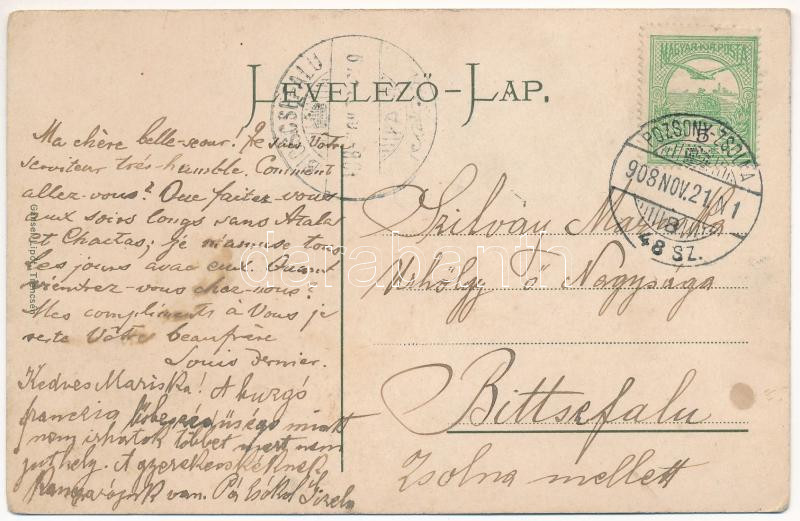 LEVELEZŐ-LAP.
MAGYAR KIR. POSTA
POZSONY-ZSOLNA
908 NOV. 21. N 1
48 SZ.
BICSCSEFALU
Ma chère belle-seour! Je sais Votre
serviteur trés-humble. Comment
allez-vous? Que faitez-vous
aux soirs longs sans Atala
et Chactas; je m'amuse tous
les jours avac eux. Quant
viendrez-vous chez-vous?
Mes compliments à Vous je
reste Vôtre beaufrère
Louis dernier.
Kedves Mariska! A buzgó
franczia miatt
nem irhatok többet mert nem
jut hely. A gyerekecskéknek
van. Pá Gizela
Szilvay Mariska
Úrhölgy ő Nagysága
Bittsefalu
Zsolna mellett
Gansel Lipót, Trencsén
darabanth